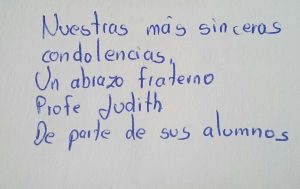 Nuestras más sinceras
condolencias,
Un abrazo fraterno
Profe Judith
De parte de sus alumnos